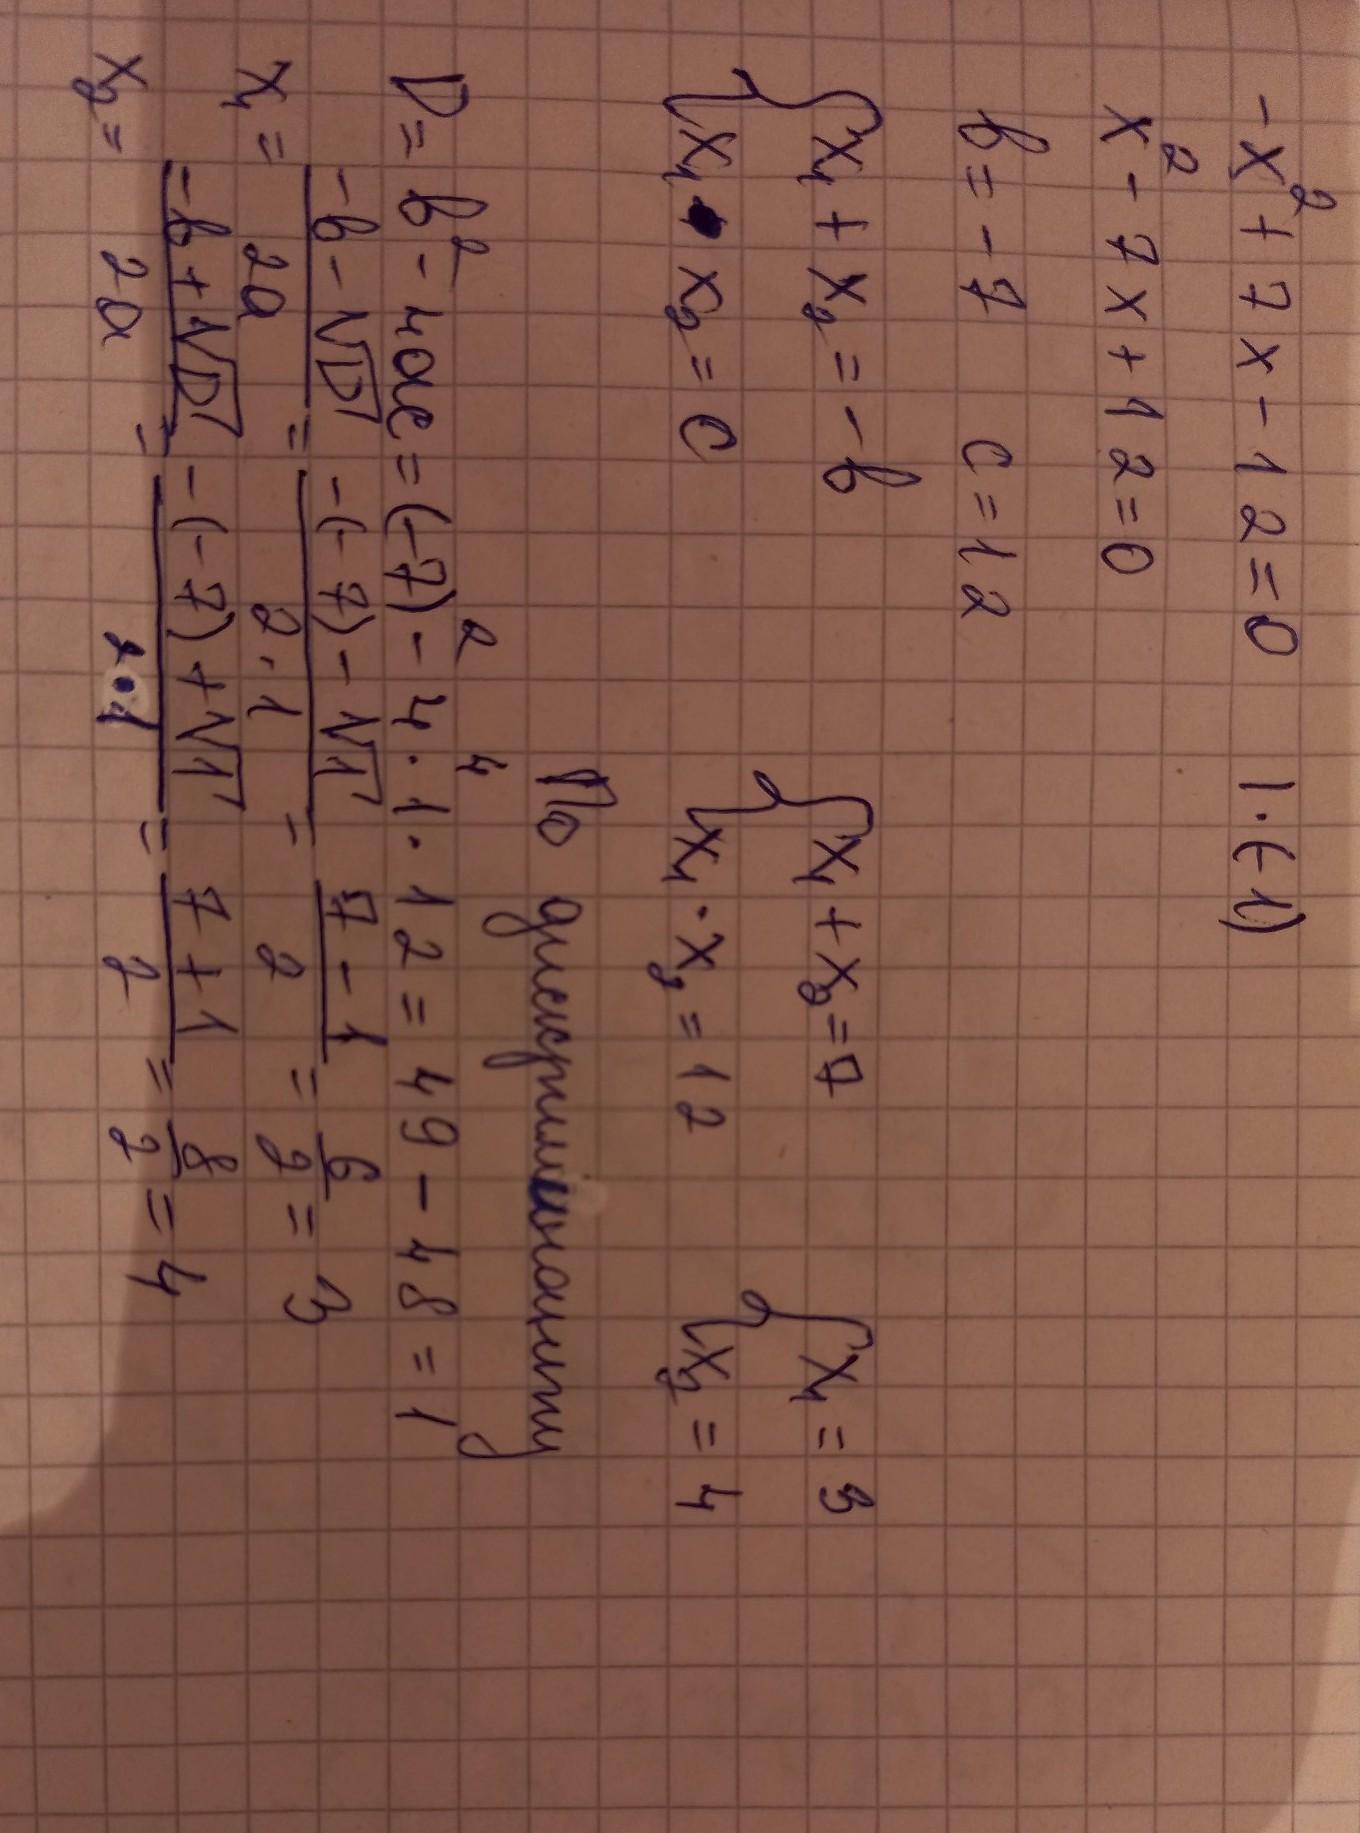 -x² + 7x - 12 = 0 | · (-1)
x² - 7x + 12 = 0
b = -7 c = 12
{ x₁ + x₂ = -b { x₁ + x₂ = 7 { x₁ = 3
{ x₁ · x₂ = c { x₁ · x₂ = 12 { x₂ = 4
По дискриминанту
4
D = b² - 4ac = (-7)² - 4 · 1 · 12 = 49 - 48 = 1
x₁ = (-b - √D)/2a = (-(-7) - √1)/(2 · 1) = (7 - 1)/2 = 6/2 = 3
x₂ = (-b + √D)/2a = (-(-7) + √1)/(2 · 1) = (7 + 1)/2 = 8/2 = 4